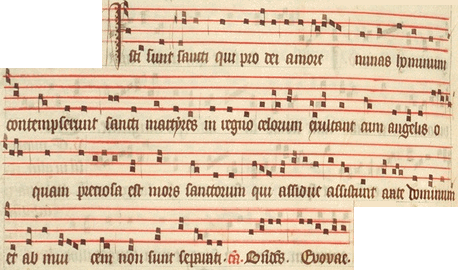 Isti sunt sancti qui pro dei amore minas hominum
contempserunt sancti martyres in regno celorum exultant cum angelis o
quam preciosa est mors sanctorum qui assidue assistunt ante dominum
et ab inui cem non sunt separati. Evovae.